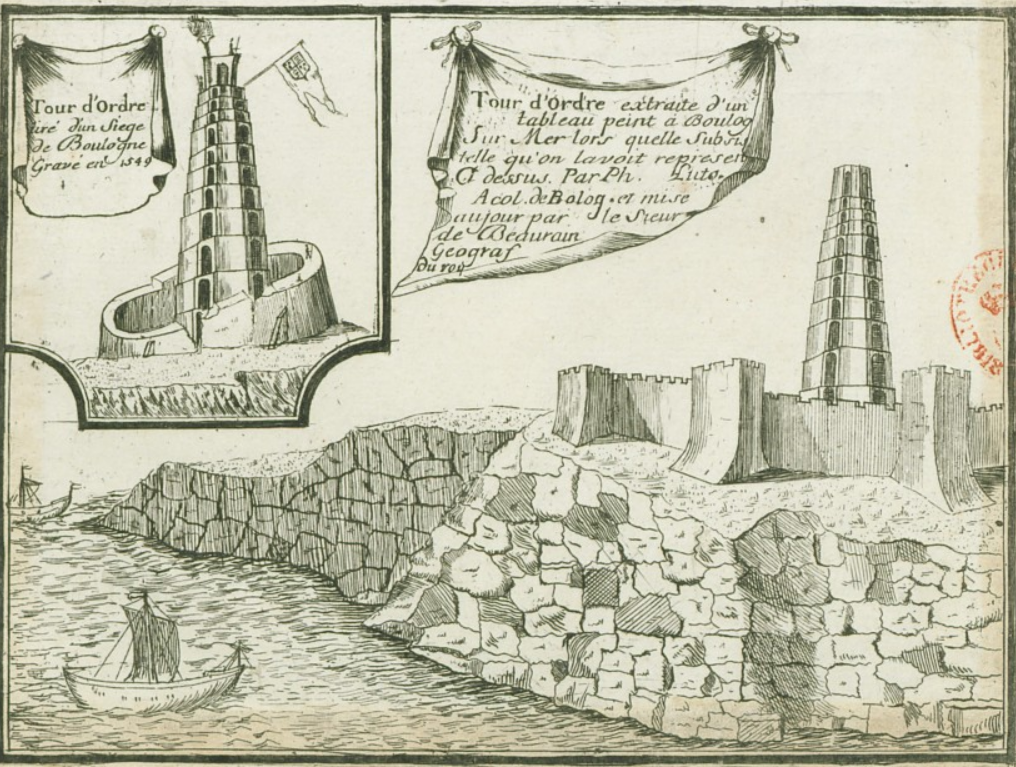 Tour d'Ordre
tiré d'un Siege
de Boulogne
Gravé en 1549
Tour d'Ordre extraite d'un
tableau peint à Boulog
Sur Mer lors quelle Subsis
telle qu'on lavoit represen
Ci dessus. Par Ph. Luto.
Acol. de Bolog. et mise
aujour par le Sieur
de Beaurain
Geograf
du roy